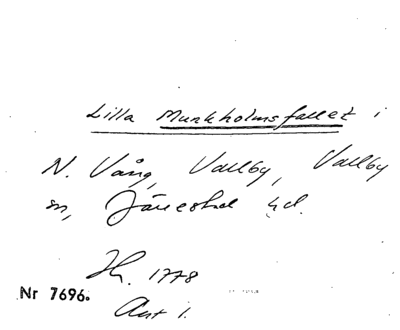 Lilla Munkholmsfallet i
N. Vång, Vallby, Vallby
sn, Järrestad hd.
Hr. 1778
Nr 7696.
Akt 1.